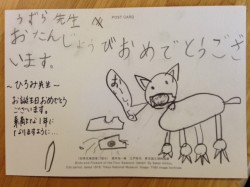 POST CARD
うずら先生
おたんじょうびおめでとうござ
います。
〜ひろみ先生〜
お誕生日おめでとう
ございます。
素敵な1年に
なりますように…
おいしい